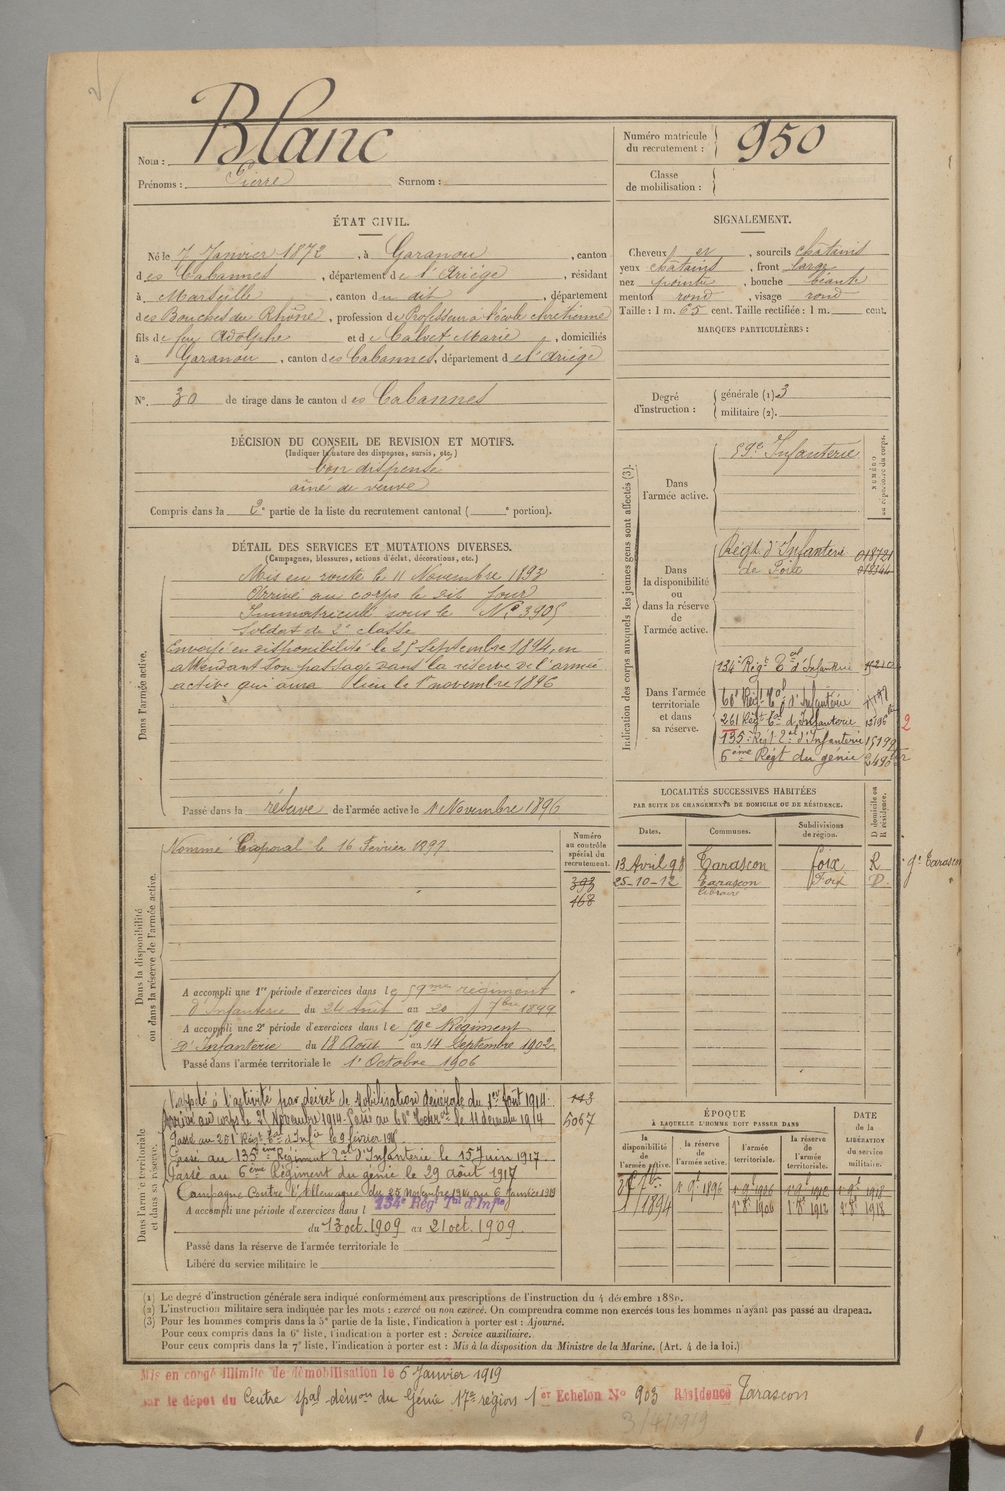 Nom : Blanc
Prénoms : Pierre Surnom :
Numéro matricule du recrutement : 950
Classe de mobilisation :
ÉTAT CIVIL.
Né le 7 Janvier 1872, à Garanou, canton
des Cabannes, département de l'Ariège, résidant
à Marseille, canton du dit, département
des Bouches du Rhône, profession de Professeur à l'école chrétienne
fils de feu Adolphe et de Calvet Marie, domiciliés
à Garanou, canton des Cabannes, département de l'Ariège
N° 30 de tirage dans le canton des Cabannes
SIGNALEMENT.
Cheveux et, sourcils châtains
yeux châtains, front large
nez pointu, bouche béante
menton rond, visage rond
Taille : 1 m. 65 cent. Taille rectifiée : 1 m. cent.
MARQUES PARTICULIÈRES :
Degré d'instruction : générale (1) 3
militaire (2).
DÉCISION DU CONSEIL DE REVISION ET MOTIFS.
(Indiquer la nature des dispenses, sursis, etc.)
bon dispensé
aîné de veuve
Compris dans la 2e partie de la liste du recrutement cantonal ( e portion).
DÉTAIL DES SERVICES ET MUTATIONS DIVERSES.
(Campagnes, blessures, actions d'éclat, décorations, etc.)
Dans l'armée active.
Mis en route le 11 Novembre 1893
Arrivé au corps le dit jour
Immatriculé sous le N° 3905
Soldat de 2e classe
Envoyé en disponibilité le 25 septembre 1894, en
attendant son passage dans la réserve de l'armée
active qui aura lieu le 1er novembre 1896
Passé dans la réserve de l'armée active le 1 Novembre 1896
Indication des corps auxquels les jeunes gens sont affectés (3).
NUMÉRO au répertoire du corps.
Dans l'armée active.
59e Infanterie
Dans la disponibilité ou dans la réserve de l'armée active.
Régt. d'Infanterie 018721
de Foix 012344
Dans l'armée territoriale et dans sa réserve.
134e Régt Tal d'Infanterie
60e Régt Tal d'Infanterie
261 Régt Tal d'Infanterie 2
135e Régt Tal d'Infanterie
6ème Régt du génie
Dans la disponibilité ou dans la réserve de l'armée active.
Numéro au contrôle spécial du recrutement.
Nommé Caporal le 16 Février 1897
393
468
A accompli une 1re période d'exercices dans le 59me régiment
d'Infanterie du 24 Août au 20 7bre 1899
A accompli une 2e période d'exercices dans le 59e Régiment
d'Infanterie du 18 Août au 14 Septembre 1902
Passé dans l'armée territoriale le 1er Octobre 1906
LOCALITÉS SUCCESSIVES HABITÉES
PAR SUITE DE CHANGEMENTS DE DOMICILE OU DE RÉSIDENCE.
Dates. Communes. Subdivisions de région. D domicile ou R résidence.
13 Avril 98 Tarascon Foix R gie Tarascon
25-10-12 Tarascon Foix D.
libraire
Dans l'armée territoriale et dans sa réserve.
Rappelé à l'activité par décret de Mobilisation Générale du 1er Août 1914.
Arrivé au corps le 25 Novembre 1914. Passé au 60e Terral le 11 décembre 1914
Passé au 261 Régt Tal d'Infie le 9 février
Passé au 135ème Régiment Tal d'Infanterie le 15 Juin 1917
Passé au 6ème Régiment du génie le 29 août 1917
Campagne Contre l'Allemagne du 25 Novembre 1914 au 6 janvier 1919
A accompli une période d'exercices dans l 134e Régt Tal d'Infie
du 13 oct. 1909 au 21 oct. 1909
Passé dans la réserve de l'armée territoriale le
Libéré du service militaire le
113
5067
ÉPOQUE
À LAQUELLE L'HOMME DOIT PASSER DANS
la disponibilité de l'armée active. la réserve de l'armée active. l'armée territoriale. la réserve de l'armée territoriale.
DATE de la LIBÉRATION du service militaire.
1894
(1) Le degré d'instruction générale sera indiqué conformément aux prescriptions de l'instruction du 4 décembre 1889.
(2) L'instruction militaire sera indiquée par les mots : exercé ou non exercé. On comprendra comme non exercés tous les hommes n'ayant pas passé au drapeau.
(3) Pour les hommes compris dans la 5e partie de la liste, l'indication à porter est : Ajourné.
Pour ceux compris dans la 6e liste, l'indication à porter est : Service auxiliaire.
Pour ceux compris dans la 7e liste, l'indication à porter est : Mis à la disposition du Ministre de la Marine. (Art. 4 de la loi.)
Mis en congé illimité de démobilisation le 6 Janvier 1919
par le dépôt du Centre spal démon du Génie 17e région 1er Echelon N° 903 Résidence Tarascon
3/4/1919